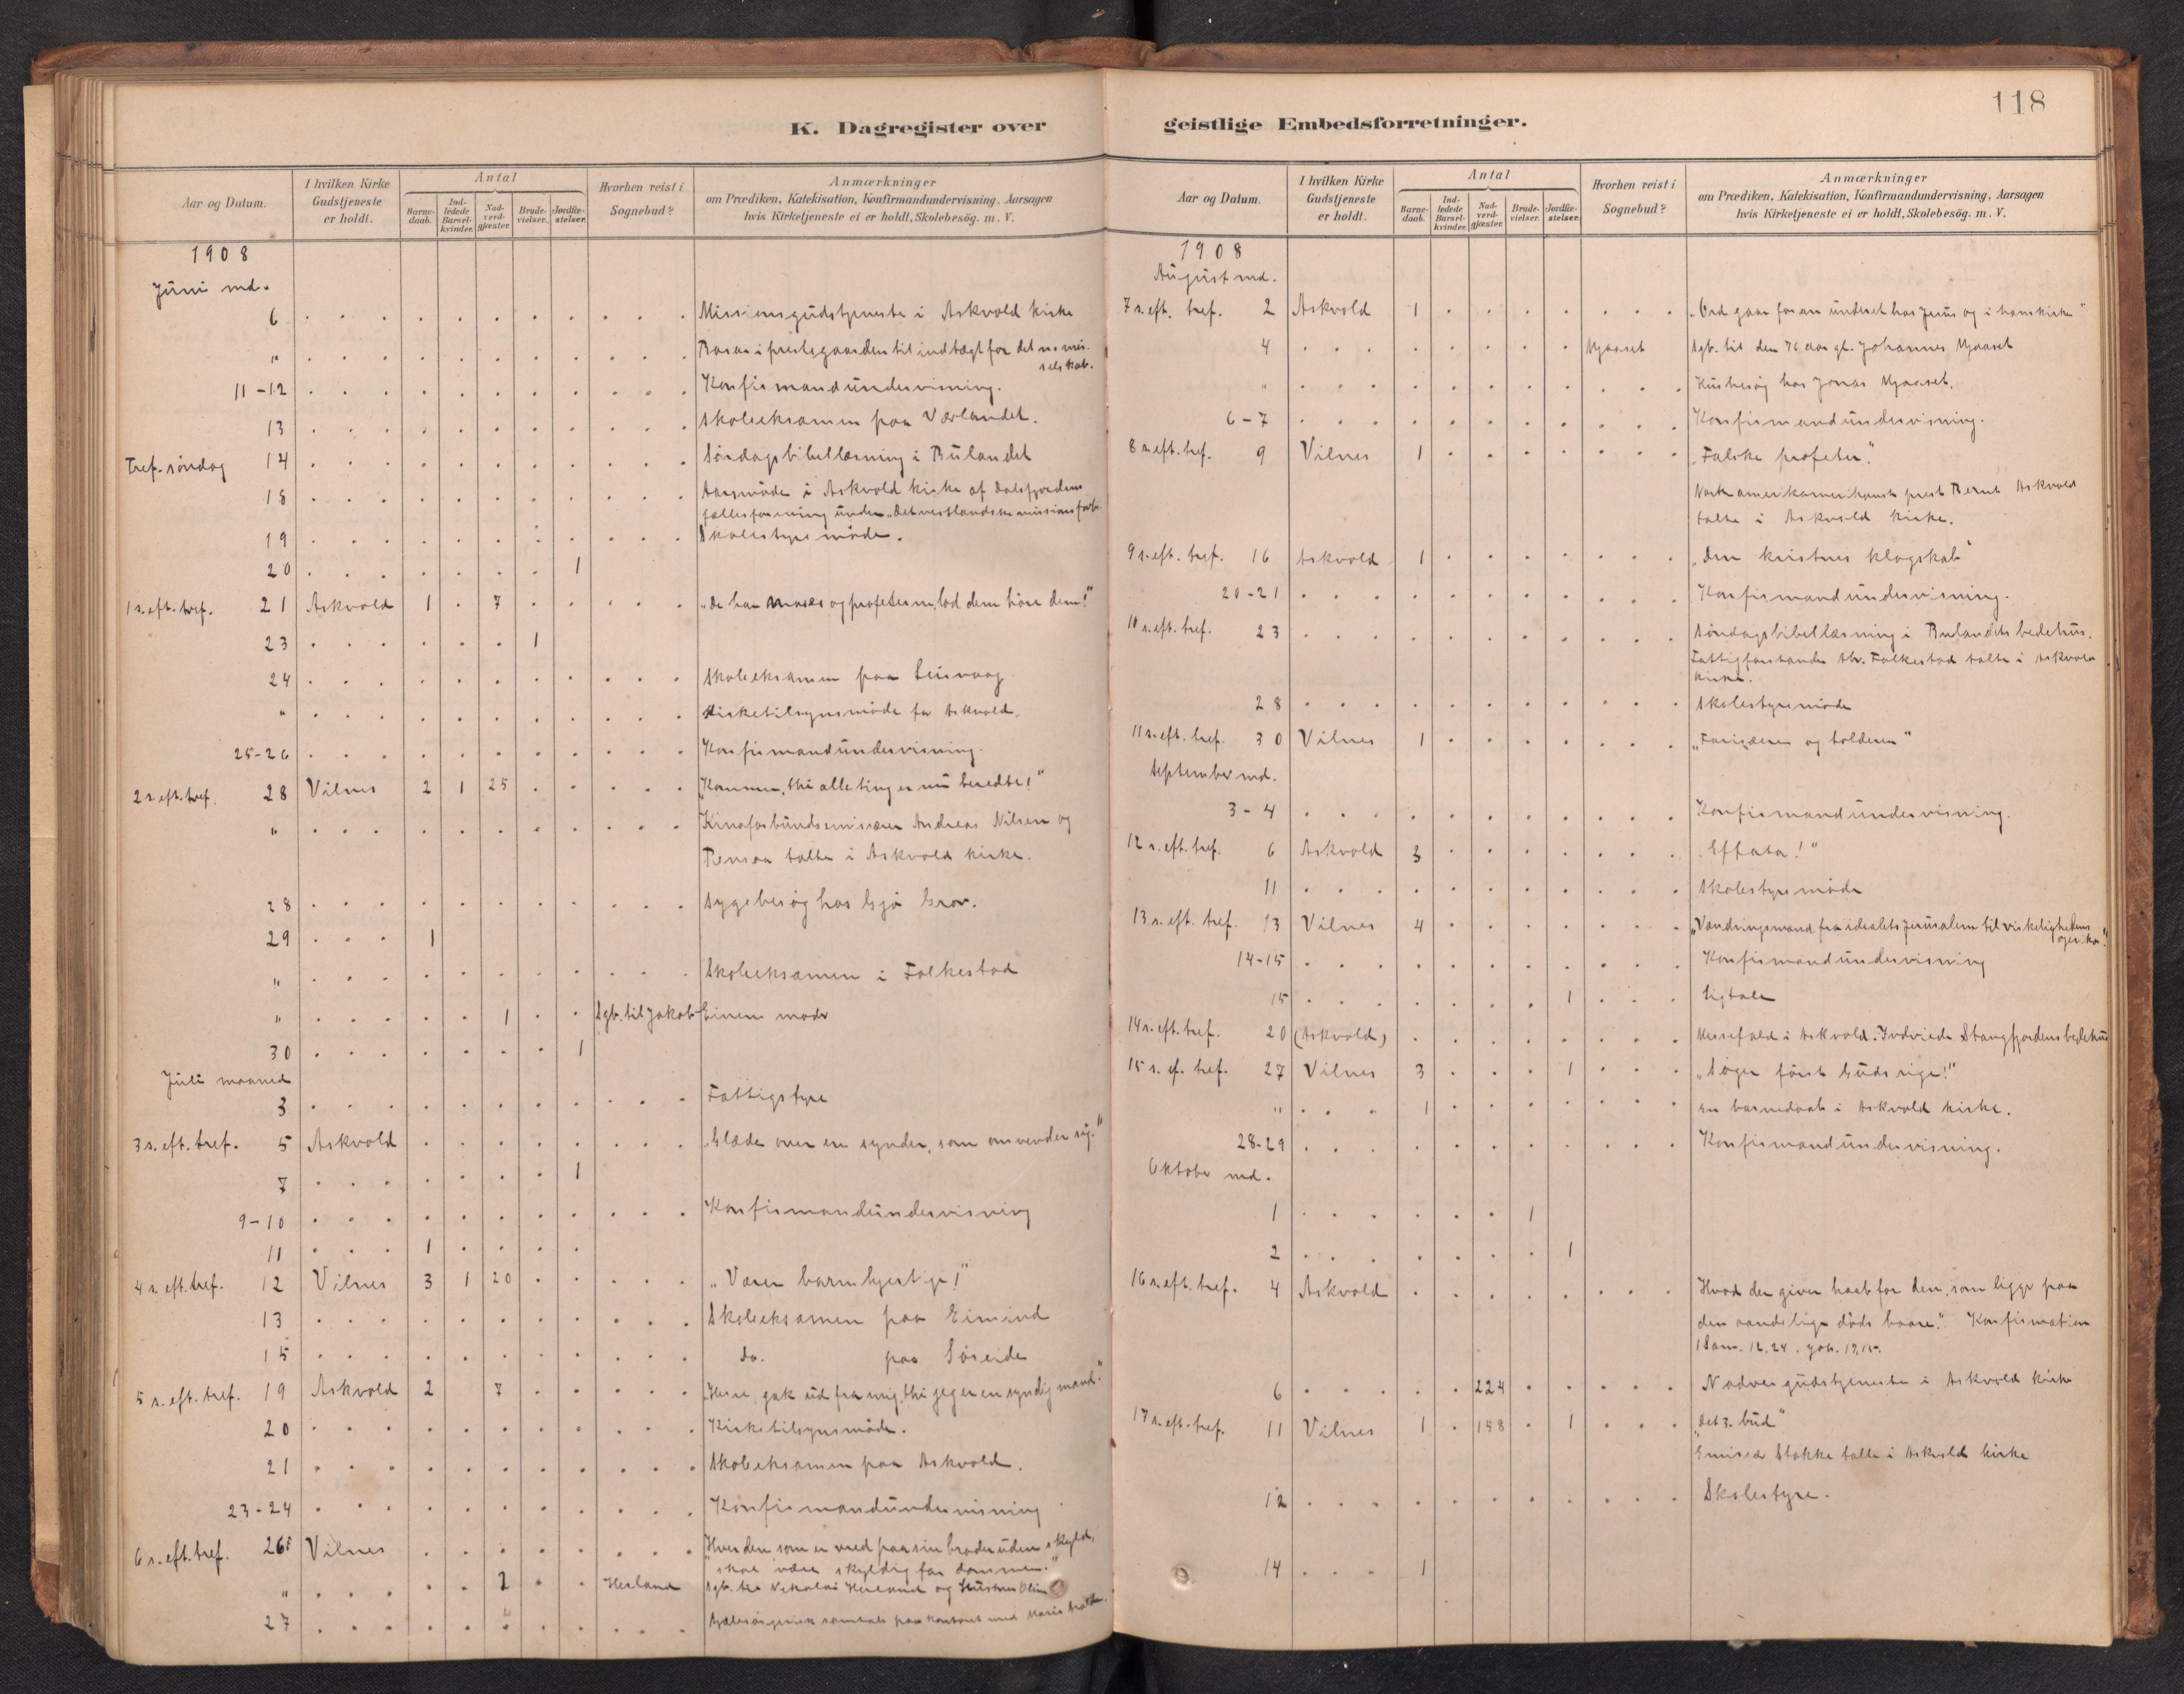 118
K. Dagregister over
Aar og Datum. I hvilken Kirke Gudstjeneste er holdt. Antal Barnedaab. Indledede Barselkvinder. Nadverdgjæster. Brudevielser. Jordfæstelser. Hvorhen reist i Sognebud? Anmærkninger
om Prædiken, Katekisation, Konfirmandundervisning. Aarsagen
hvis Kirketjeneste ei er holdt, Skolebesög. m. V.
1908
Juni md.
6 Missionsgudstjeneste i Askvold kirke
" Basar i prestegaarden til indtægt for det n. mis.
selskab.
11-12 Konfirmandundervisning.
13 Skoleeksamen paa Værlandet.
Tref. søndag 14 Søndagsbibellæsning i Bulandet
18 Aarsmøde i Askvold kirke af Dalsfjordens
fællesforening under "Det vestlandske missionsforb.
19 Skolestyremøde.
20 1
1 s. eft. tref. 21 Askvold 1 7 "De har Moses og profeterne, lad dem høre dem!"
23 1
24 Skoleeksamen paa Leirvaag
" Kirketilsynsmøde for Askvold.
25-26 Konfirmandundervisning.
2 s. eft. tref. 28 Vilnes 2 1 25 "Kommer, thi alle ting er nu beredte!"
" Kinaforbundsemissær Andreas Nilsen og
talte i Askvold kirke.
28 Sygebesøg hos Gjø Grov.
29 1
" Skoleeksamen i Folkestad
" 1 Sgb. til Jakob Einens moder
30 1
Juli maaned
3 Fattigstyre
3 s. eft. tref. 5 Askvold "Glæde over en synder, som omvender sig."
7 1
9-10 Konfirmandundervisning
11 1
4 s. eft. tref. 12 Vilnes 3 1 20 "Værer barmhjertige!"
13 Skoleeksamen paa Eimind
15 do. paa Søreide
5 s. eft. tref. 19 Askvold 2 7 "Herre, gak ud fra mig, thi jeg er en syndig mand."
20 Kirketilsynsmøde.
21 Skoleeksamen paa Askvold.
23-24 Konfirmandundervisning
6 s. eft. tref. 26 Vilnes "Hver den som er vred paa sin broder uden skyld,
skal være skyldig for dommen."
" 2 Herland Sgb. til Nikolai Herland og hustru Oline
27 Sjælesørgerisk samtale paa kontoret med Marie
geistlige Embedsforretninger.
Aar og Datum. I hvilken Kirke Gudstjeneste er holdt. Antal Barnedaab. Indledede Barselkvinder. Nadverdgjæster. Brudevielser. Jordfæstelser. Hvorhen reist i Sognebud? Anmærkninger
om Prædiken, Katekisation, Konfirmandundervisning, Aarsagen
hvis Kirketjeneste ei er holdt, Skolebesög. m. V.
1908
August md.
7 s. eft. tref. 2 Askvold 1 "Ord gaar foran underet hos Jesus og i hans kirke"
4 Mjaaset Sgb. til den 76 aar gl. Johannes Mjaaset
" Husbesøg hos Jonas Mjaaset.
6-7 Konfirmandundervisning.
8 s. eft. tref. 9 Vilnes 1 "Falske profeter."
prest Bernt Askvold
talte i Askvold kirke.
9 s. eft. tref. 16 Askvold 1 "Den kristnes klogskab"
20-21 Konfirmandundervisning.
10 s. eft. tref. 23 Søndagsbibellæsning i Bulandets bedehus.
Fattigforstander Folkestad talte i Askvold
kirke.
28 Skolestyremøde
11 s. eft. tref. 30 Vilnes 1 "Farisæeren og tolderen"
September md.
3-4 Konfirmandundervisning.
12 s. eft. tref. 6 Askvold 3 "Effata!"
11 Skolestyremøde
13 s. eft. tref. 13 Vilnes 4 "Vandringsmand fra idealets Jerusalem til virkelighedens
Jeriko."
14-15 Konfirmandundervisning
15 1 Ligtale
14 s. eft. tref. 20 (Askvold) Messefald i Askvold. Indviede Stangfjordens bedehus
15 s. ef. tref. 27 Vilnes 3 1 "Søger først Guds rige!"
" 1 En barnedaab i Askvold kirke.
28-29 Konfirmandundervisning.
Oktober md.
1 1
2 1
16 s. eft. tref. 4 Askvold Hvad der giver haab for den, som ligger paa
den aandelige døds baare." Konfirmation
1 Sam. 12, 24. Job. 17, 15.
6 224 Nadvergudstjeneste i Askvold kirke
17 s. eft. tref. 11 Vilnes 1 158 1 "Det 3. bud"
Emissær Stokke talte i Askvold kirke
12 Skolestyre.
14 1